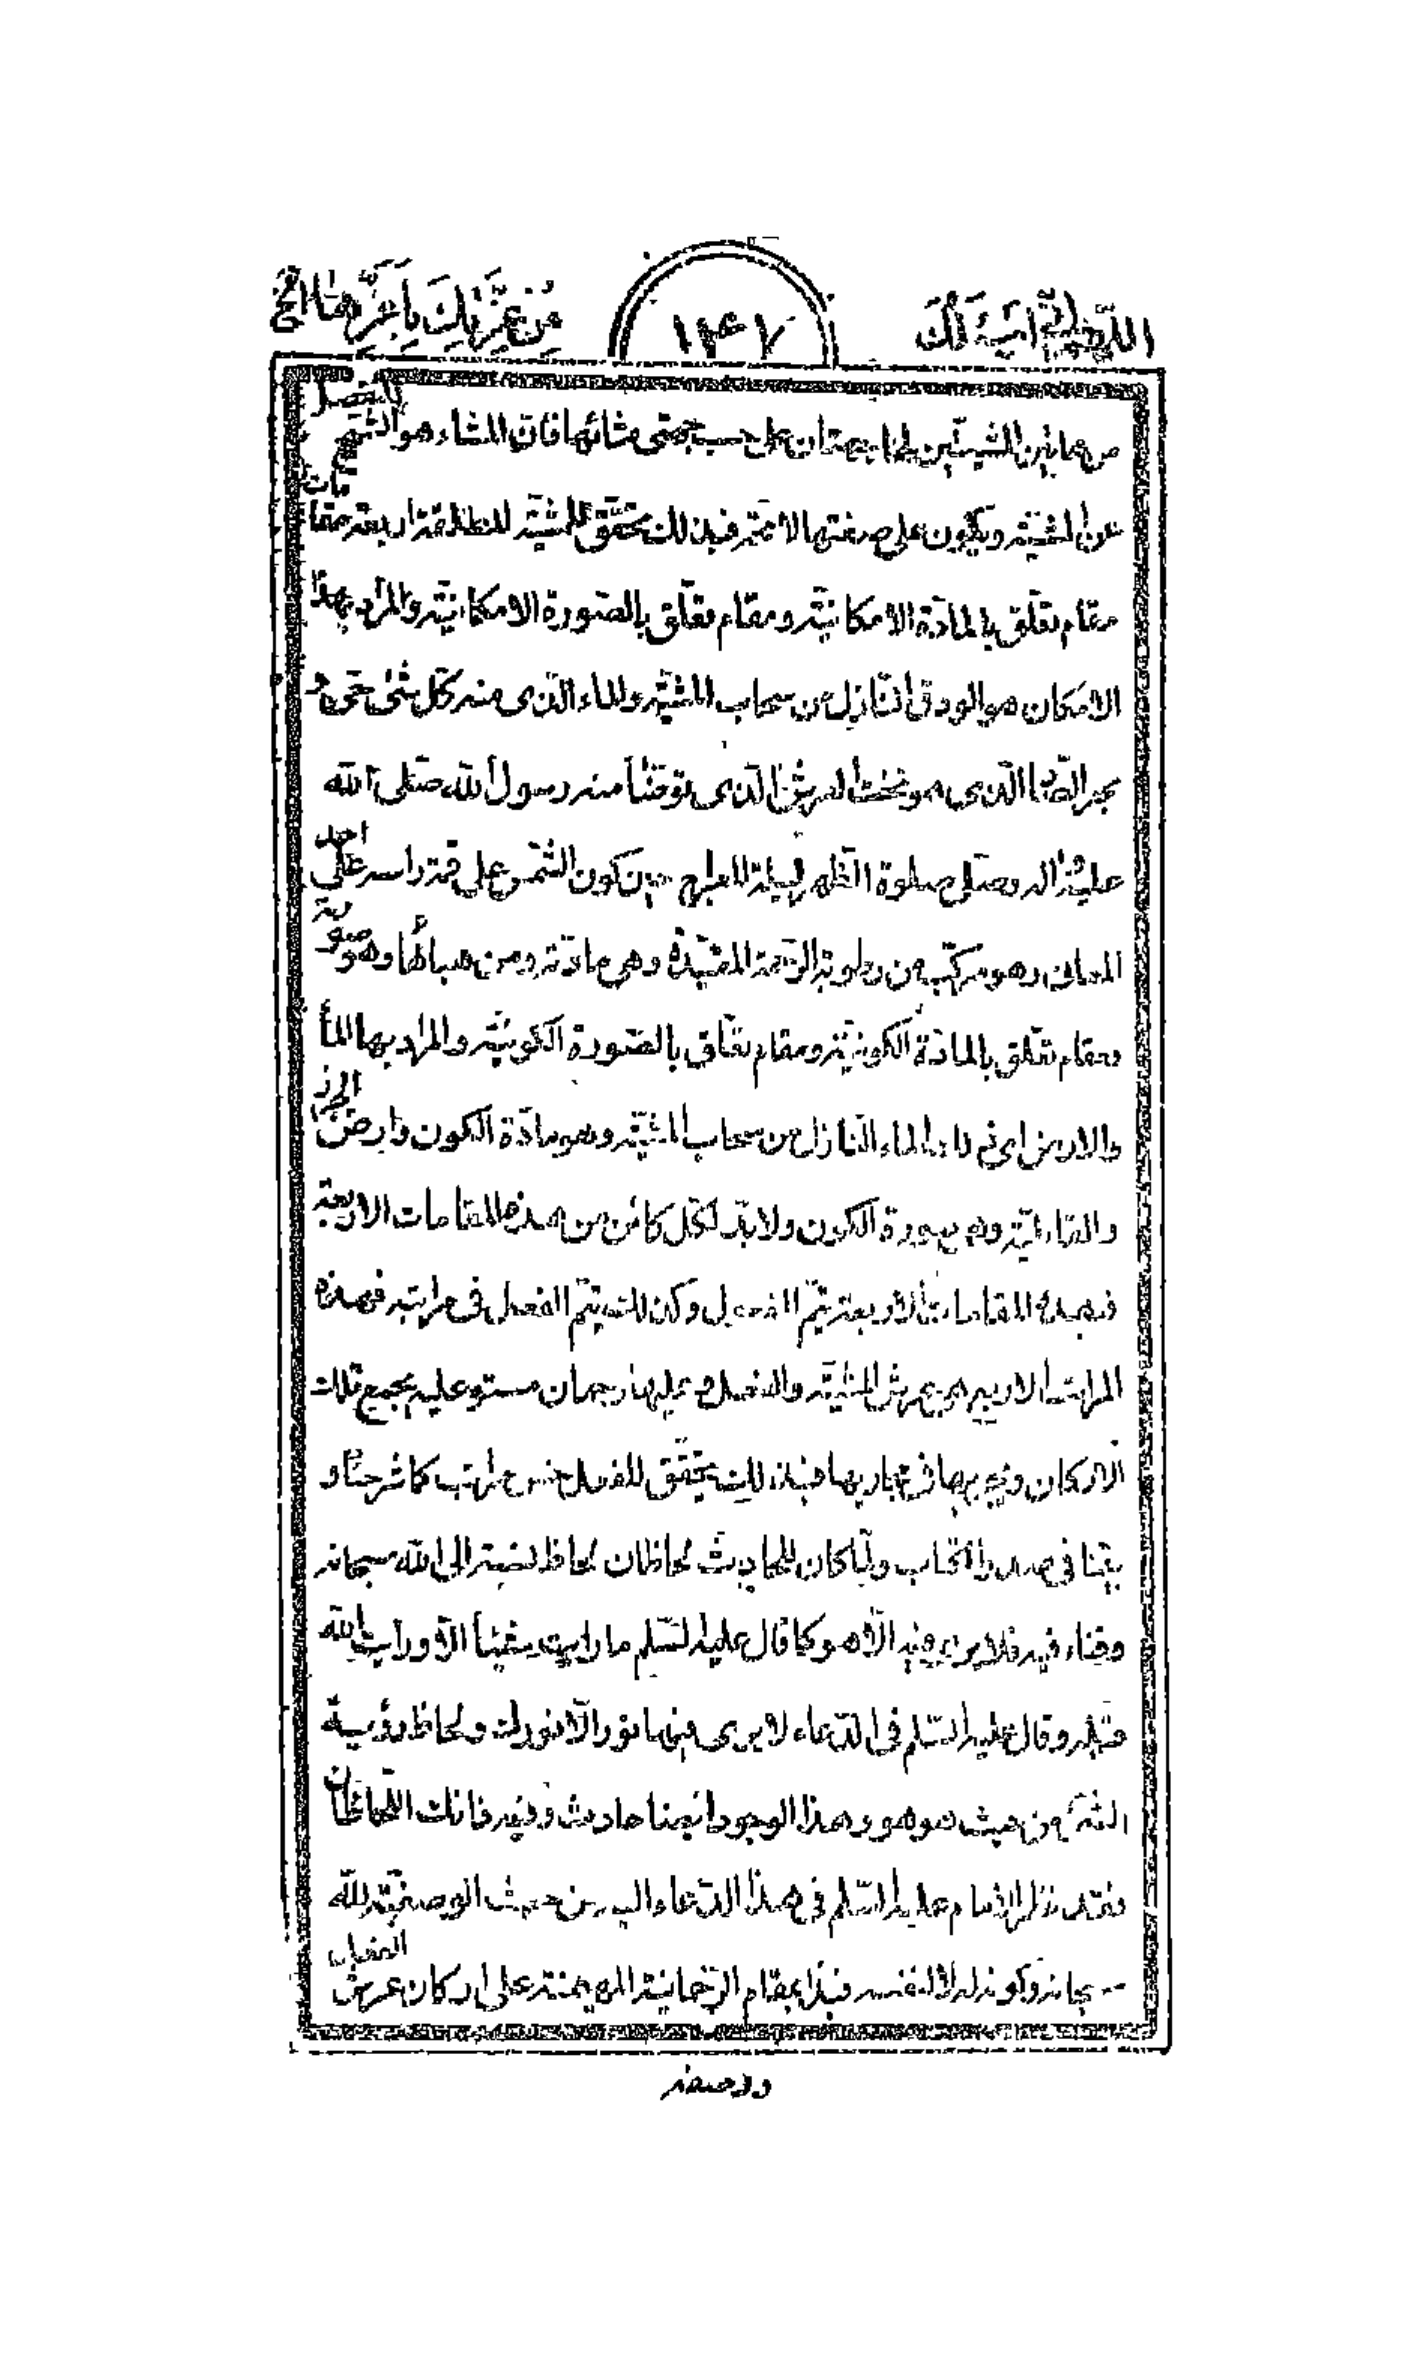 اللّهم انّى اسئلك
١٤٧
من عزّتك باعزّها الخ
من هاتين المشيتين لها جهتان على حسب جهتى مشائها فان المشاء هو المنفصل
عن المشيّة ويكون على صفتها فبذلك تحقّق للمشيّة المطلقة اربعة مقامات
مقام تعلّق بالمادّة الامكانيّة ومقام تعلّق بالصّورة الامكانيّة والمراد بهذا
الامكان هو الودق النّازل من سحاب المشيّة والماء الّذى منه كلّ شئ حىّ وهو
بحر الصّاد الّذى هو تحت العرش الّذى توضّأ منه رسول الله صلّى الله
عليه واله وصلّى صلوة الظّهر ليلة المعراج حين كون الشّمس على قمة راسه على احد
المعانى وهو مركّب من رطوبة الرّحمة وهى مادّته ومن هبائها وهو صورته
ومقام تعلّق بالمادّة الكونيّة ومقام تعلّق بالصّورة الكونيّة والمراد بها الماء
والارض الماء النّازل من سحاب المشيّة وهو مادّة الكون وارض الجرز
والقابليّة وهى صورة الكون ولا بدّ لكلّ كائن من هذه المقامات الاربعة
فبهذه المقامات الاربعة يتمّ المفعول وكذلك يتمّ الفعل فى مراتبه فهذه
المراتب الاربع هى عرش المشيّة والفعل عليها رحمان مستو عليه بجميع تلك
الاركان فى مجاريها فبذلك يتحقّق للفعل خمس مراتب كما شرحنا و
بيّنا فى هذا الكتاب ولمّا كان للحادث لحاظان لحاظ نسبته الى الله سبحانه
وفناء فيه فلا يرى فيه الّا هو كما قال عليه السّلم ما رايت شيئا الّا ورايت الله
قبله وقال عليه السّلم فى الدّعاء لا يرى فيها نور الّا نورك ولحاظ رؤية
الشئ من حيث هو هو وهذا الوجود ايضا حادث وفيه ذانك اللّحاظان
فقد نظر الامام عليه السّلم فى هذا الدّعاء اليه من حيث الوصفيّة لله
سبحانه وكونه له لا لنفسه بمقام الرّحمانية المهيمنة على اركان عرش الفعل
ووصفه